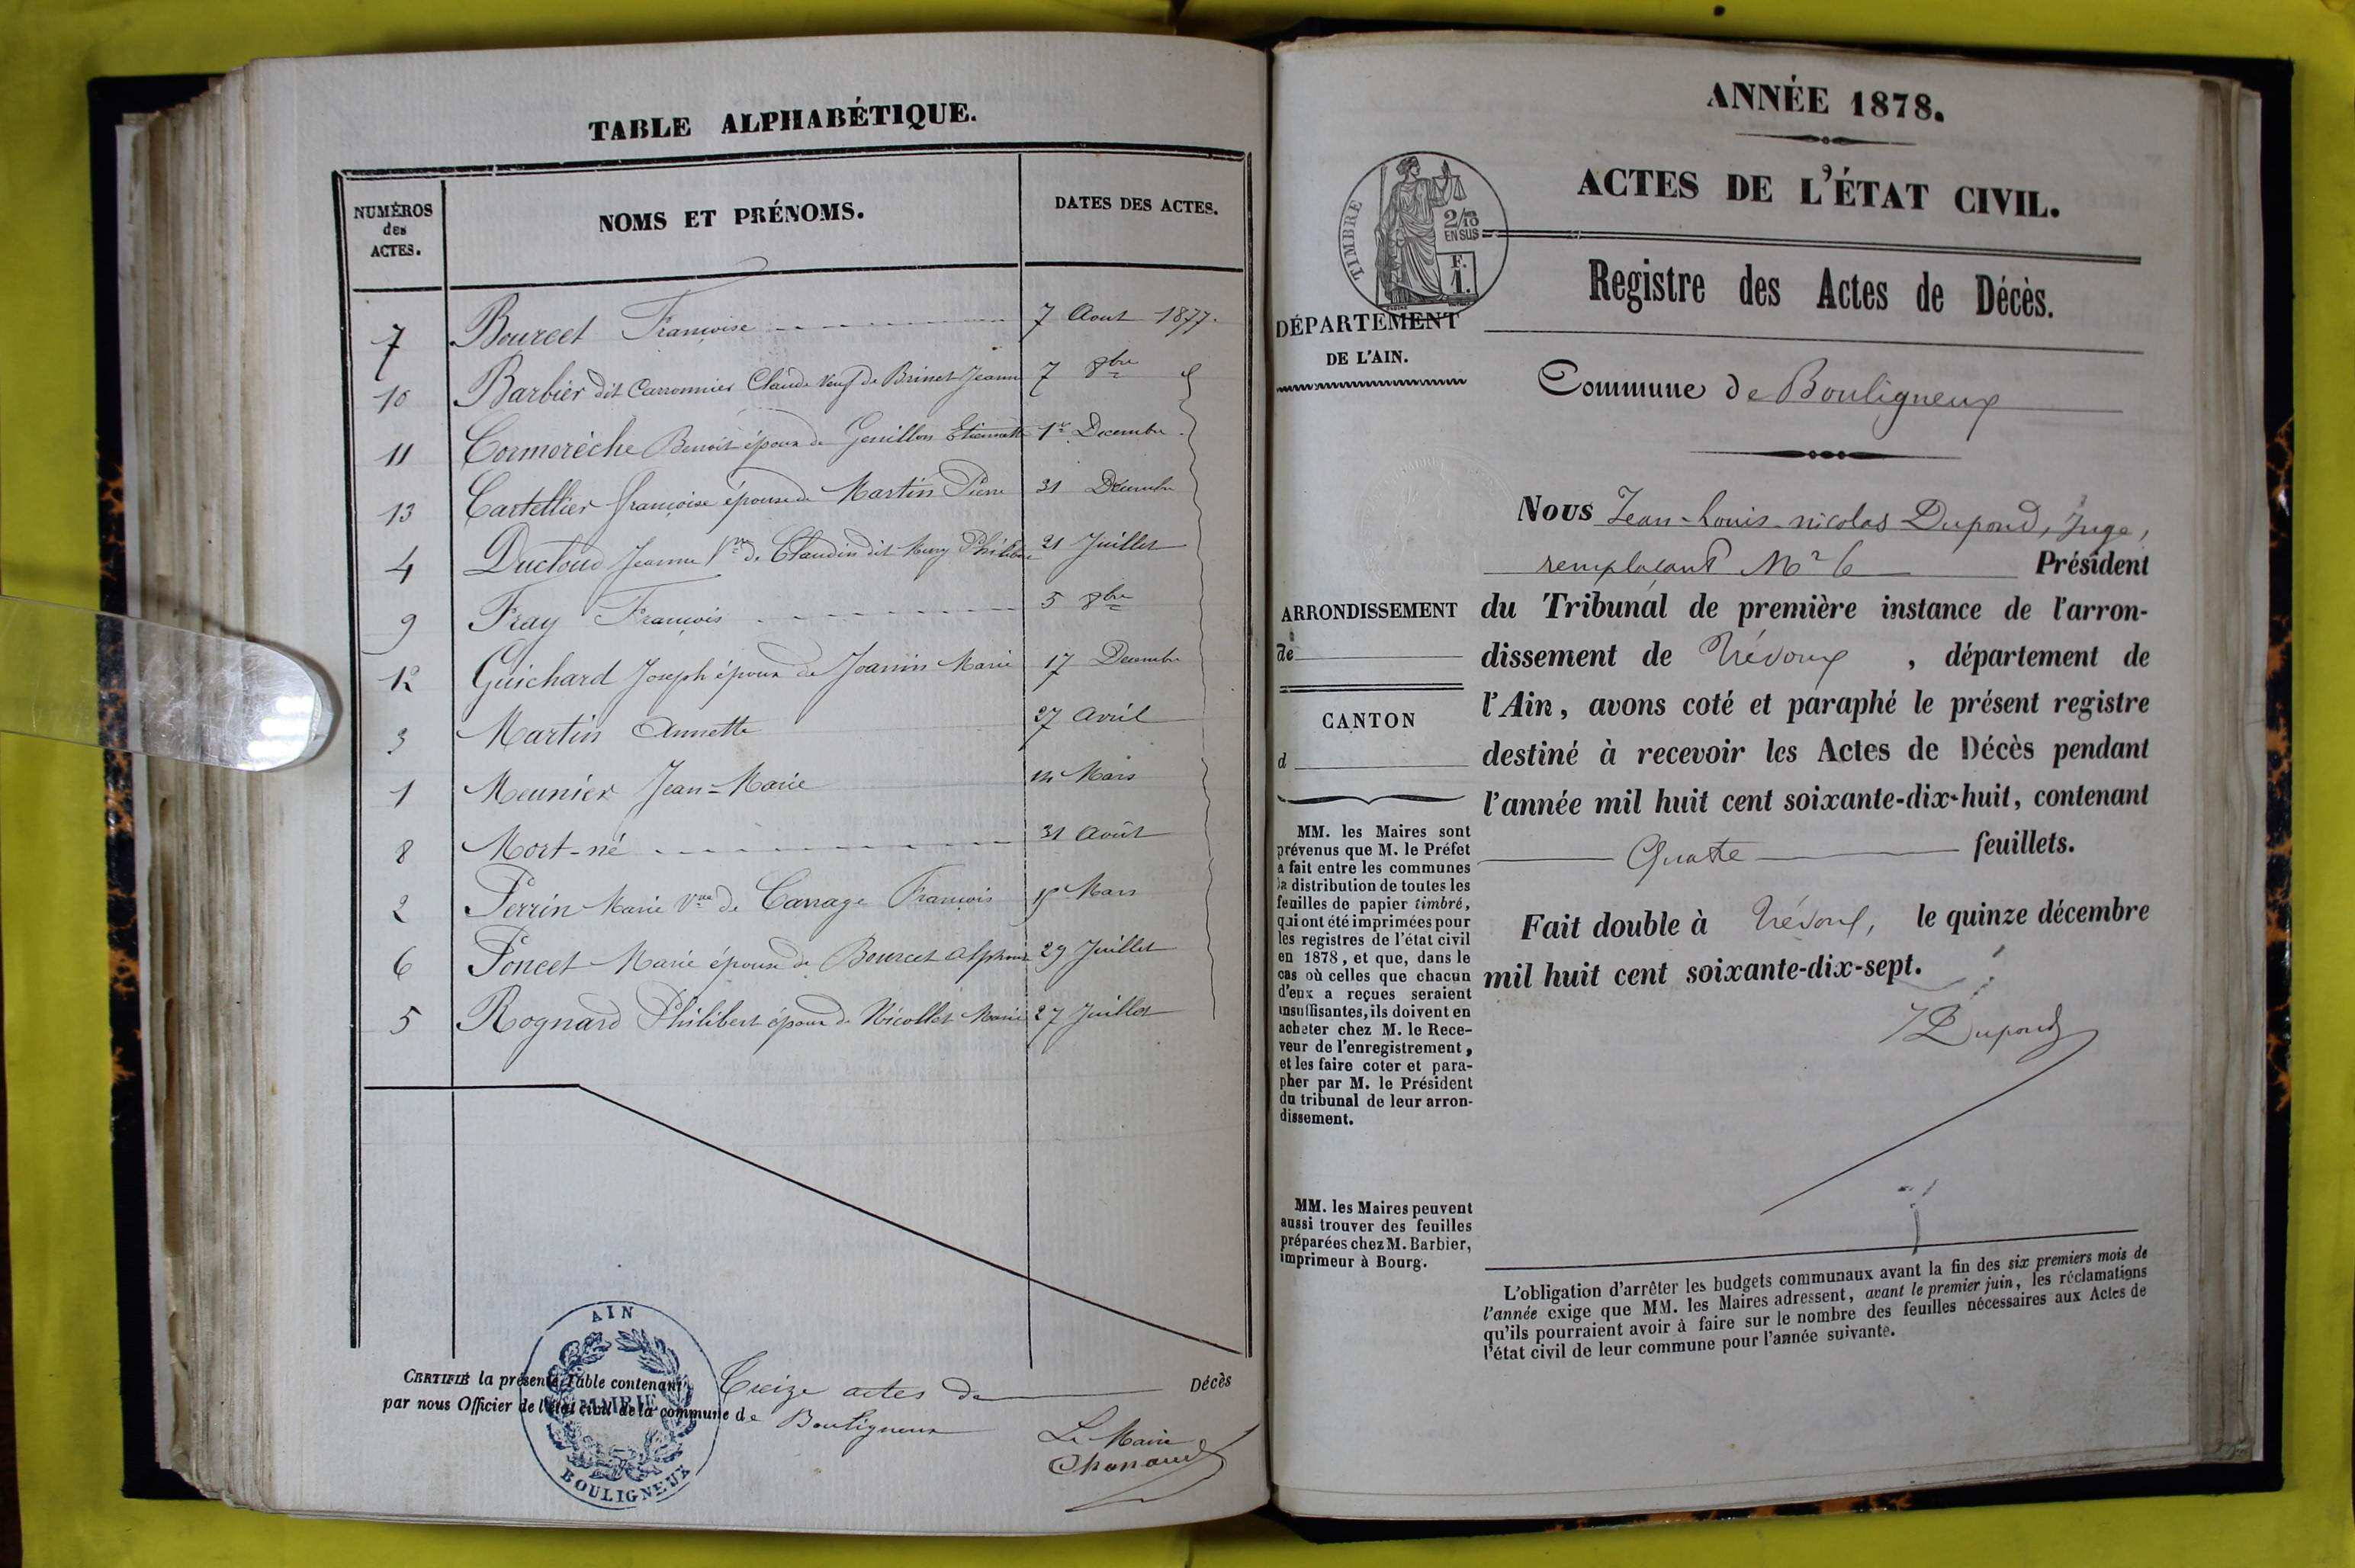 TABLE ALPHABÉTIQUE.
NUMÉROS
des
ACTES.
NOMS ET PRÉNOMS.
DATES DES ACTES.
7 Bourcet Françoise 7 Aout 1877.
10 Barbier dit Carronnier Claude veuf de Brinet Jeanne 7 8bre
11 Cormorèche Benoit époux de Genillon Etiennette 1er Decembre
13 Cartellier françoise épouse de Martin Pierre 31 Décembre
4 Ducloud Jeanne Vve de Claudin dit 21 Juillet
9 Fray François 5 8bre
12 Guichard Joseph époux de Joannin Marie 17 Decembre
3 Martin Annette 27 Avril
1 Meunier Jean-Marie Mars
8 Mort-né 31 Août
2 Perrin Marie Vve de Carrage François Mars
6 Poncet Marie épouse de Bourcet Alphonse 29 Juillet
5 Rognard Philibert époux de Nicollet Marie 27 Juillet
CERTIFIÉ la présente Table contenant Treize actes de Décès
par nous Officier de l'état civil de la commune de Bouligneux
Le Maire
AIN
MAIRIE
BOULIGNEUX
ANNÉE 1878.
ACTES DE L'ÉTAT CIVIL.
TIMBRE
2/10
EN SUS
F.
1.
Registre des Actes de Décès.
DÉPARTEMENT
DE L'AIN.
Commune de Bouligneux
Nous Jean-Louis-nicolas Dupond, Juge,
remplaçant Mr le Président
ARRONDISSEMENT
de
CANTON
d
du Tribunal de première instance de l'arron-
dissement de Trévoux, département de
l'Ain, avons coté et paraphé le présent registre
destiné à recevoir les Actes de Décès pendant
l'année mil huit cent soixante-dix-huit, contenant
Quatre feuillets.
Fait double à Trévoux, le quinze décembre
mil huit cent soixante-dix-sept.
Dupond
MM. les Maires sont
prévenus que M. le Préfet
a fait entre les communes
la distribution de toutes les
feuilles de papier timbré,
qui ont été imprimées pour
les registres de l'état civil
en 1878, et que, dans le
cas où celles que chacun
d'eux a reçues seraient
insuffisantes, ils doivent en
acheter chez M. le Rece-
veur de l'enregistrement,
et les faire coter et para-
pher par M. le Président
du tribunal de leur arron-
dissement.
MM. les Maires peuvent
aussi trouver des feuilles
préparées chez M. Barbier,
imprimeur à Bourg.
L'obligation d'arrêter les budgets communaux avant la fin des six premiers mois de
l'année exige que MM. les Maires adressent, avant le premier juin, les réclamations
qu'ils pourraient avoir à faire sur le nombre des feuilles nécessaires aux Actes de
l'état civil de leur commune pour l'année suivante.